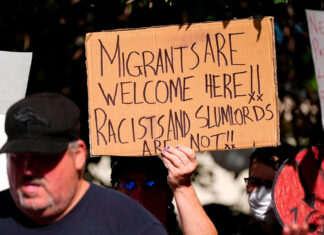 MIGRANTS ARE
WELCOME HERE!!
RACISTS AND SLUMLORDS
ARE NOT!!